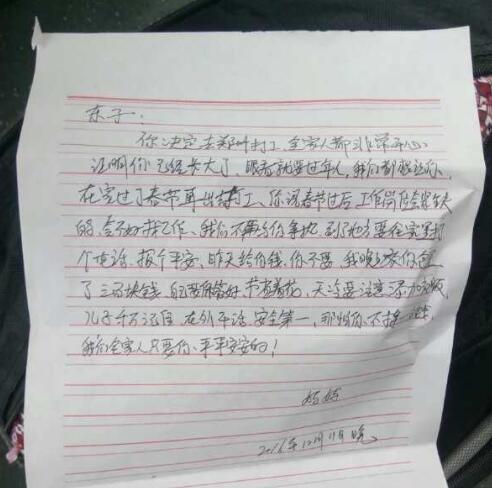 东子:
你决定去郑州打工,全家人都非常开心
证明你已经长大了、眼看就要过年了,我们都想让你
在家过了春节再出去打工、你说春节过后工作岗位会缺失
的,会不好找工作、我们不再与你争执,到了地方要往家里打
个电话、报个平安、昨天给你钱,你不要,我晚上在你包
了三百块钱、自己要保管好、节省着花,天冷要注意添加衣服、
儿子千万记住 在外平安 安全第一、那怕你不挣一分钱,
我们全家人只要你、平平安安的!
妈妈
2016年12月11日晚